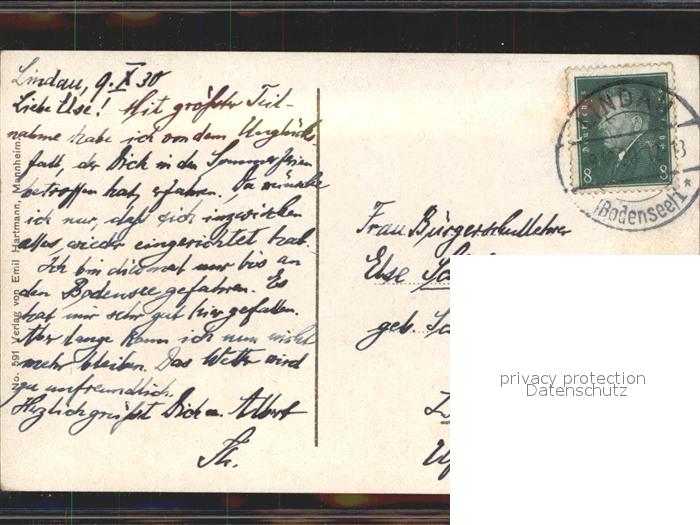 Lindau, 9. X 30
Liebe Else! Mit größter Teil-
nahme habe ich von dem Unglücks-
fall, der Dich in den Sommerferien
betroffen hat, erfahren. Da wünsche
ich nur, daß sich inzwischen
alles wieder eingerichtet hat.
Ich bin diesmal nur bis an
den Bodensee gefahren. Es
hat mir sehr gut hier gefallen.
Aber lange kann ich nun nicht
mehr bleiben. Das Wetter wird
zu unfreundlich.
Herzlich grüßt Dich u. Albert
Th.
No. 591 Verlag von Emil Hartmann, Mannheim
LINDAU
(Bodensee)
8 8
Frau Bürgerschullehrer
Else
geb.
privacy protection
Datenschutz